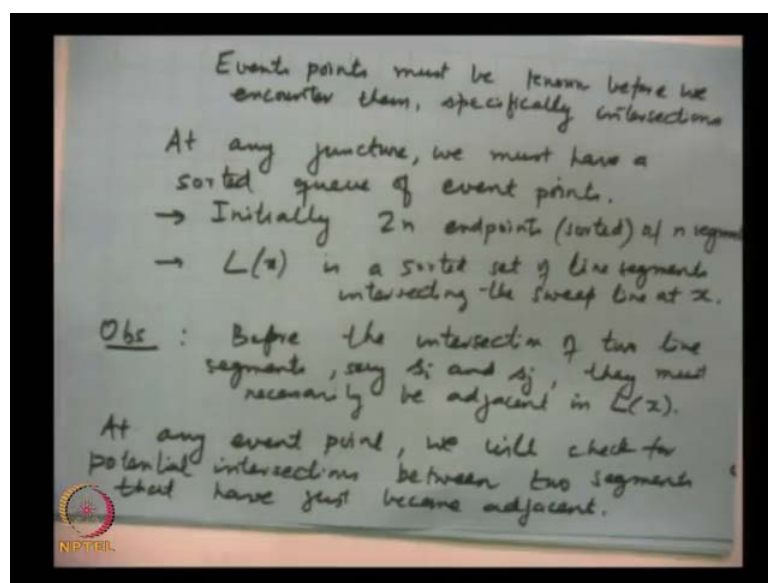 Events points must be known before we
encounter them, specifically intersections
At any juncture, we must have a
sorted queue of event points.
→ Initially 2n endpoints (sorted) of n segmen
→ L(x) is a sorted set of line segments
intersecting the sweep line at x.
Obs : Before the intersection of two line
segments, say si and sj, they must
necessarily be adjacent in L(x).
At any event point, we will check for
potential intersections between two segments
that have just become adjacent.
NPTEL